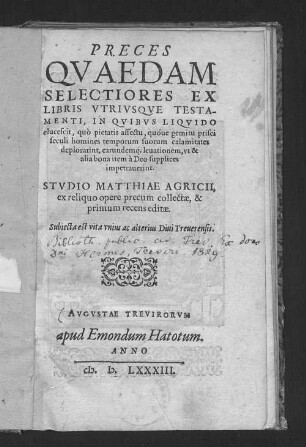 PRECES
QVAEDAM
SELECTIORES EX
LIBRIS VTRIVSQVE TESTA-
MENTI, IN QVIBVS LIQVIDO
elucescit, quò pietatis affectu, quóue gemitu prisci
seculi homines temporum suorum calamitates
deplorarint, earundemq́; leuationem, vt &
alia bona item à Deo supplices
impetrauerint.
STVDIO MATTHIAE AGRICII,
ex reliquo opere precum collectæ, &
primum recens editæ.
Subiecta est vita vnius ac alterius Diui Treuerensis.
Biblioth. public. civ. Trev. Ex dono
Dni Hermes, Treviri 1829
AVGVSTAE TREVIRORVM
apud Emondum Hatotum.
ANNO
cIɔ. Iɔ. LXXXIII.